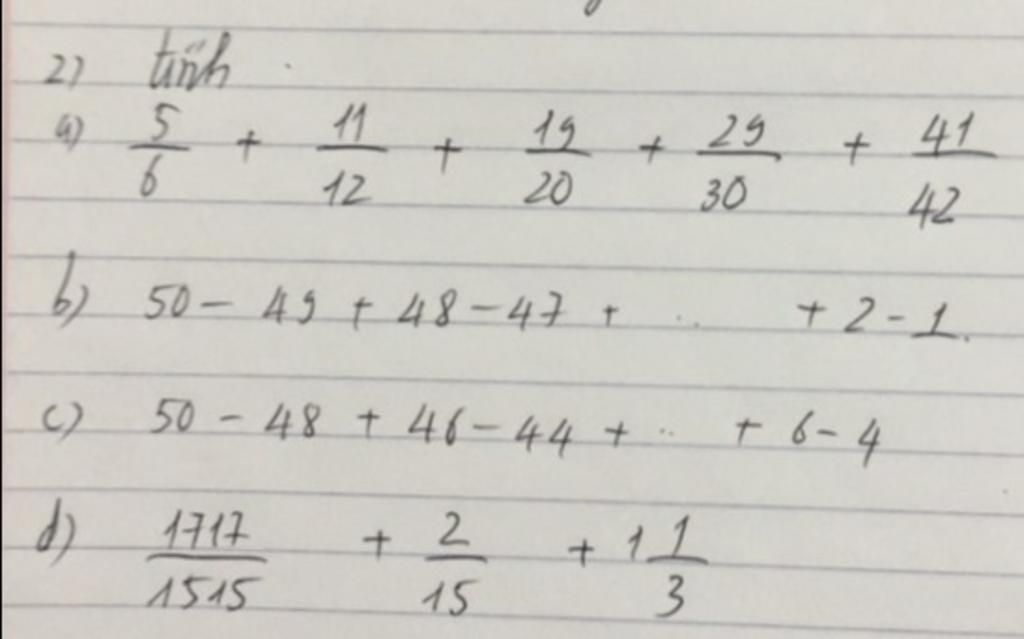 2) tính
a) 5/6 + 11/12 + 19/20 + 29/30 + 41/42
b) 50 - 49 + 48 - 47 + .. + 2 - 1.
c) 50 - 48 + 46 - 44 + .. + 6 - 4
d) 1717/1515 + 2/15 + 1 1/3